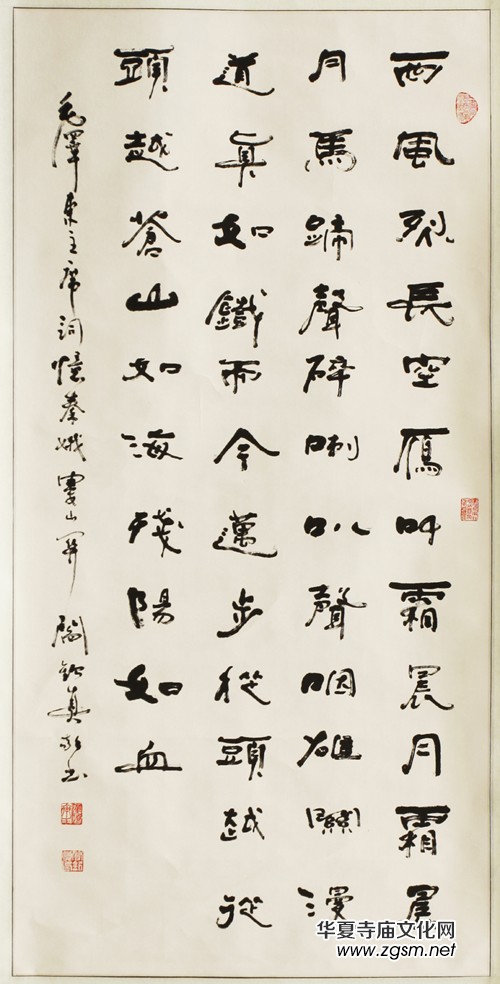 西風烈長空鴈叫霜晨月霜晨
月馬蹄聲碎喇叭聲咽雄關漫
道真如鐵而今邁步從頭越從
頭越蒼山如海殘陽如血
毛澤東主席詞憶秦娥婁山關
华夏寺庙文化网
www.zgsm.net